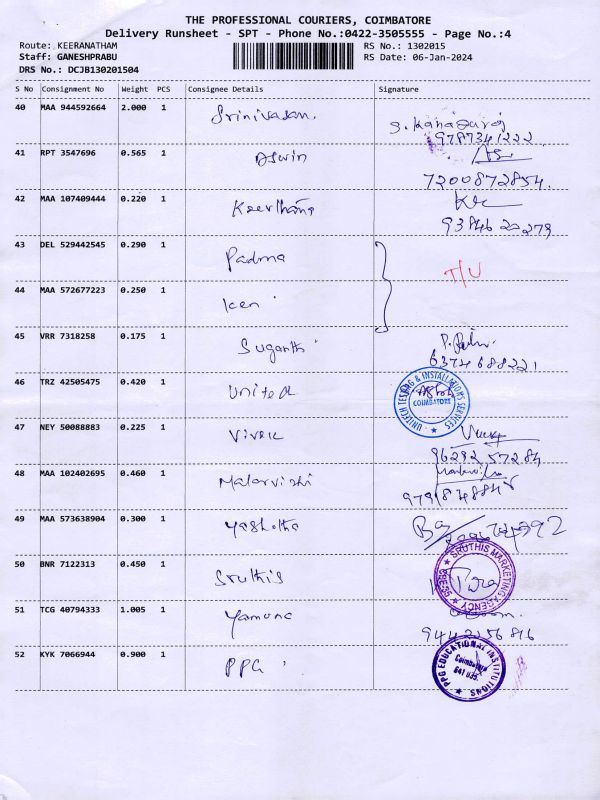 THE PROFESSIONAL COURIERS, COIMBATORE
Delivery Runsheet - SPT - Phone No.:0422-3505555 - Page No.:4
Route: KEERANATHAM RS No.: 1302015
Staff: GANESHPRABU RS Date: 06-Jan-2024
DRS No.: DCJB130201504
S No Consignment No Weight PCS Consignee Details Signature
40 MAA 944592664 2.000 1 Srinivasan
S. Kanagaraj
9787341222
41 RPT 3547696 0.565 1 Aswin
7200872854
42 MAA 107409444 0.220 1 Keerthana
43 DEL 529442545 0.290 1 Padma
T/U
44 MAA 572677223 0.250 1 Ken
45 VRR 7318258 0.175 1 Suganthi
6374688221
46 TRZ 42505475 0.420 1 United
UNITECH TESTING & INSTALLATIONS SERVICES
COIMBATORE
47 NEY 50088883 0.225 1 Vivek
96292 57284
48 MAA 102402695 0.460 1 Malarvizhi
49 MAA 573638904 0.300 1 Yashotha
50 BNR 7122313 0.450 1 Sruthis
SRUTHIS MARKETING AGENCY
51 TCG 40794333 1.005 1 Yamuna
52 KYK 7066944 0.900 1 PPG
PPG EDUCATIONAL INSTITUTIONS
Coimbatore
641 035.